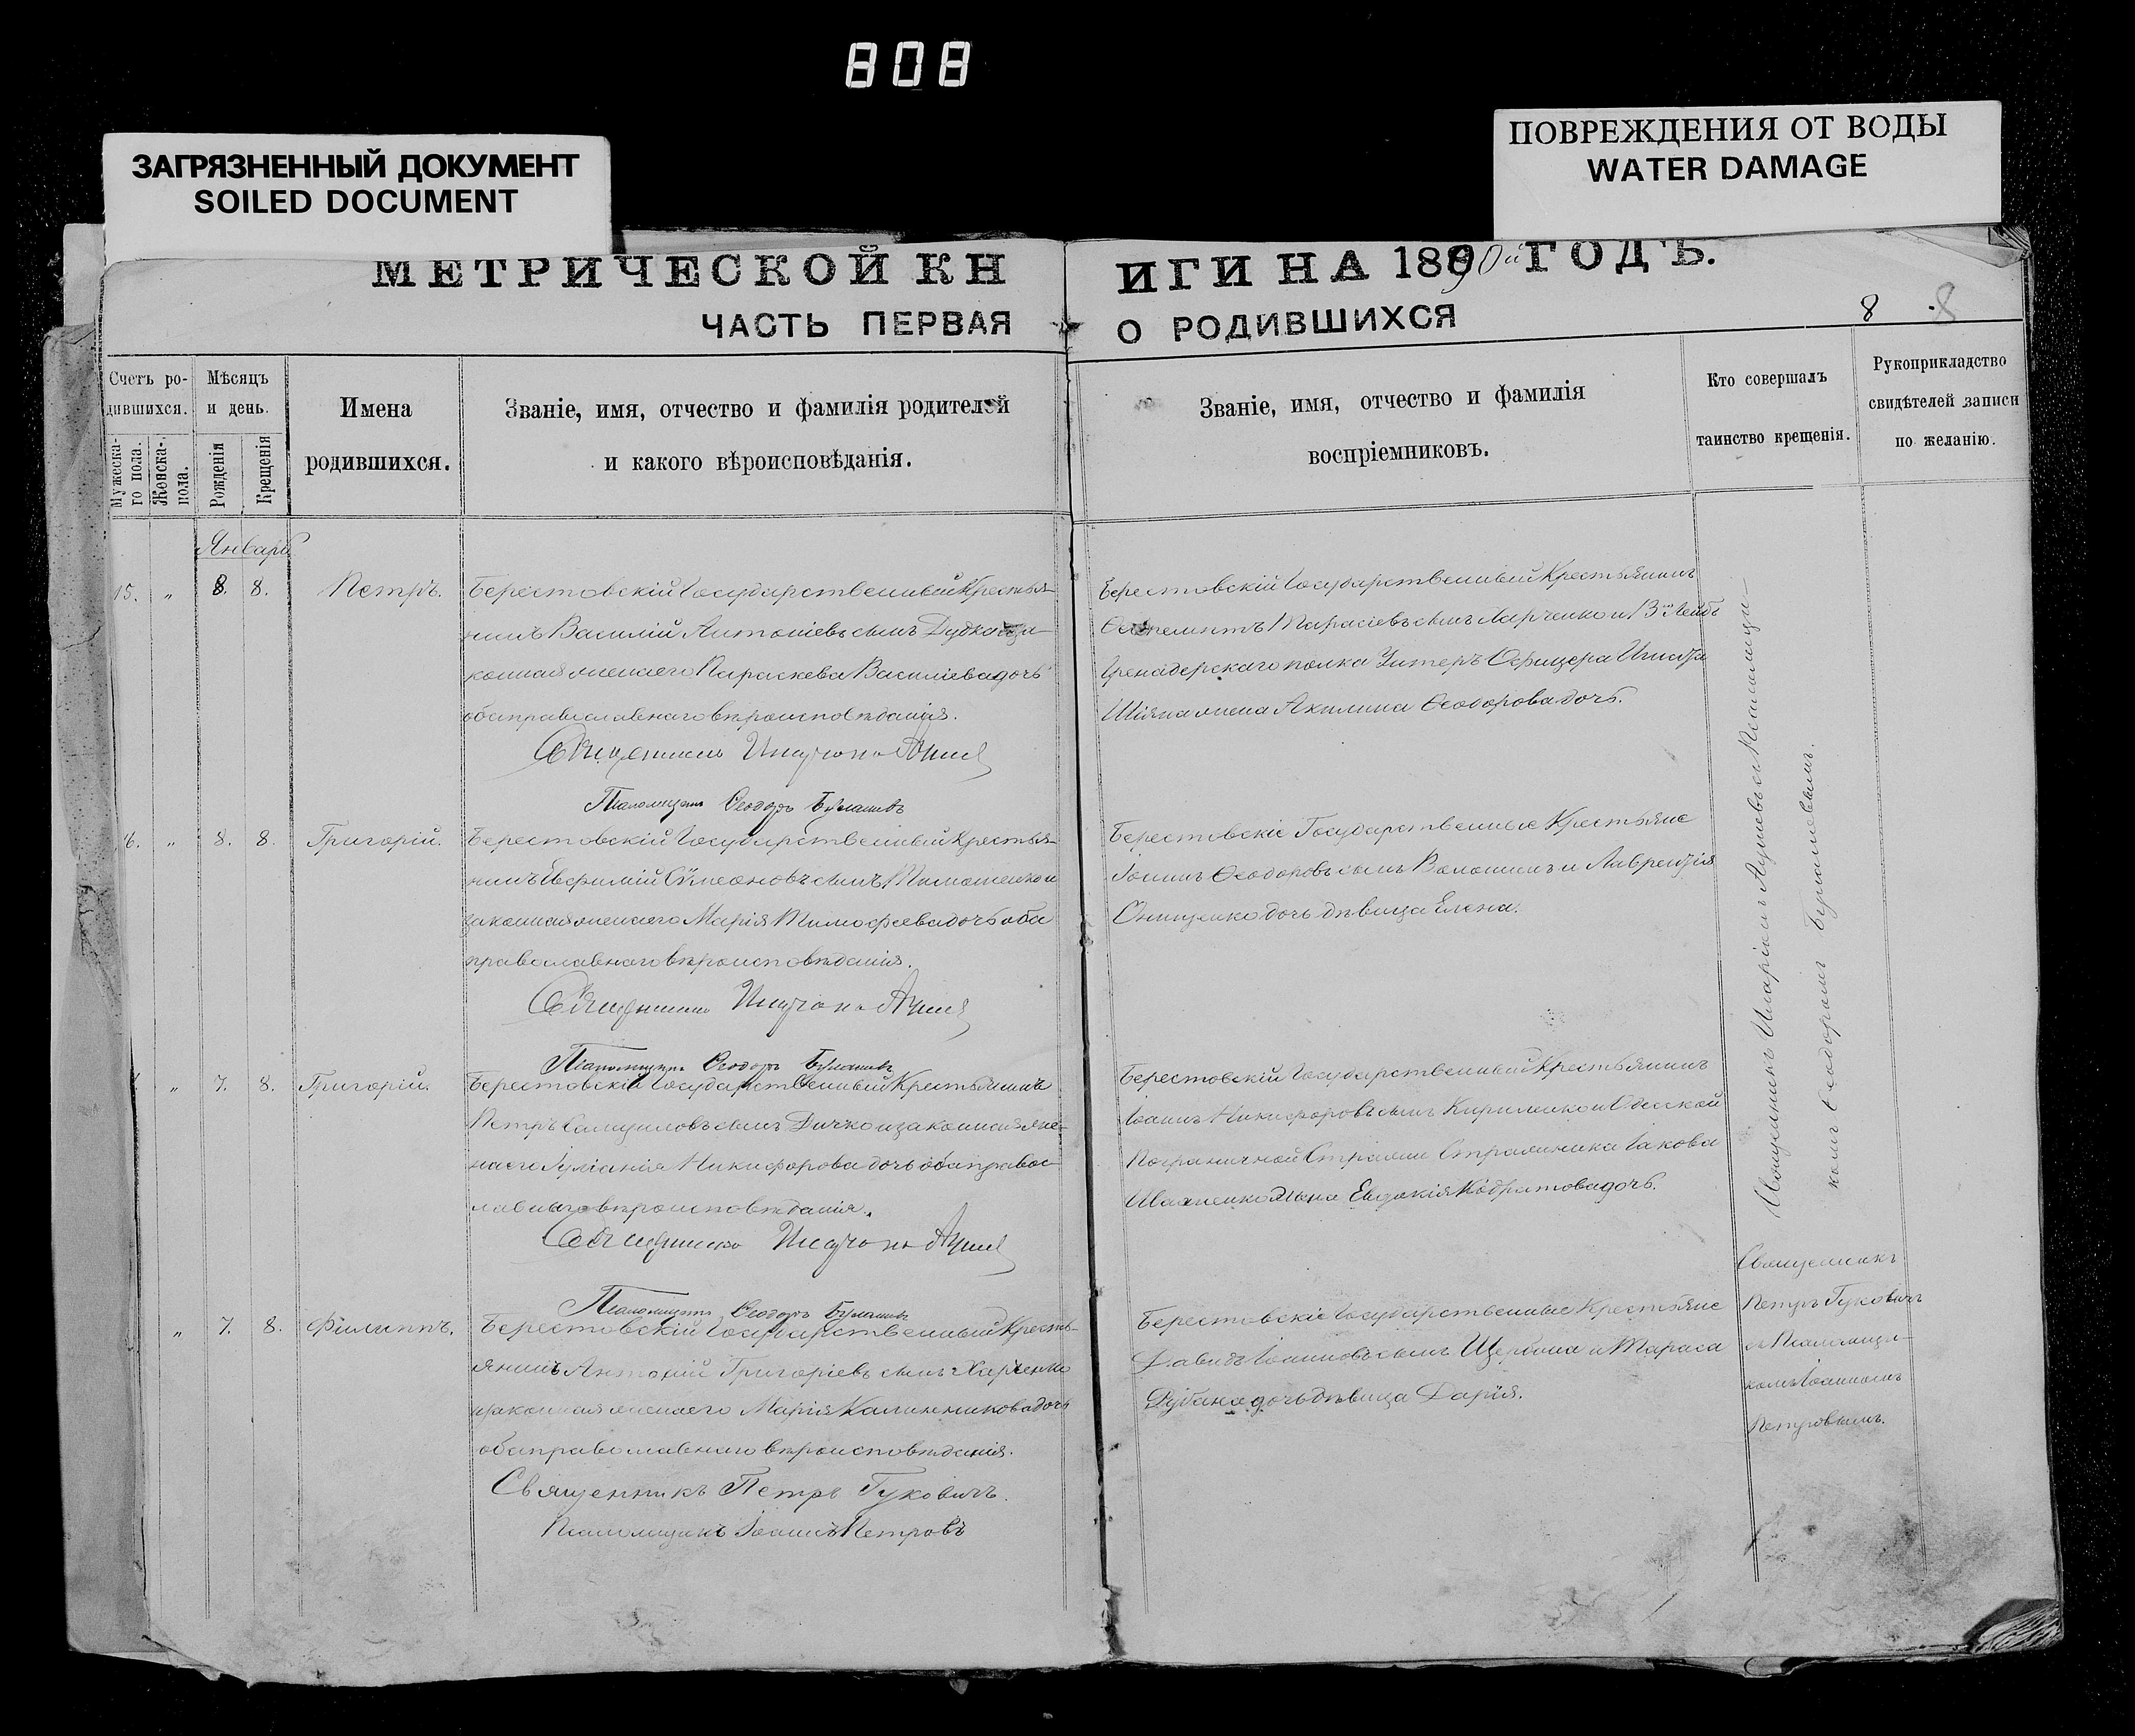 808
ЗАГРЯЗНЕННЫЙ ДОКУМЕНТ
SOILED DOCUMENT
ПОВРЕЖДЕНИЯ ОТ ВОДЫ
WATER DAMAGE
МЕТРИЧЕСКОЙ КНИГИ НА 1890й ГОДЪ.
ЧАСТЬ ПЕРВАЯ О РОДИВШИХСЯ
8 8
Счетъ ро-
дившихся.
Мужеска-
го пола.
Женска-
пола.
Мѣсяцъ
и день.
Рожденія
Крещенія
Имена
родившихся.
Званіе, имя, отчество и фамилія родителей
и какого вѣроисповѣданія.
Званіе, имя, отчество и фамилія
воспріемниковъ.
Кто совершалъ
таинство крещенія.
Рукоприкладство
свидѣтелей записи
по желанію.
Январь
15. " 8. 8. Петръ.
Берестовскій Государственный Крестья-
нинъ Василій Антоніевъ сынъ
конная жена его Параскева Василіева дочь
оба православнаго вѣроисповѣданія.
Священникъ
Псаломщикъ Ѳеодоръ
Берестовскій Государственный Крестьянинъ
Тарасіевъ сынъ Марченко и 13го Лейбъ
Гренадерскаго полка Унтеръ Офицера Игнатія
жена Акилина Ѳеодорова дочь.
6. " 8. 8. Григорій.
Берестовскій Государственный Крестья-
нинъ Евфимій Сѵмеоновъ сынъ Тимошенко и
законная жена его Марія Тимофеева дочь оба
православнаго вѣроисповѣданія.
Священникъ
Псаломщикъ Ѳеодоръ
Берестовскіе Государственные Крестьяне
Іоаннъ Ѳеодоровъ сынъ Волошинъ и Лаврентія
Онищенко дочь дѣвица Елена.
" 7. 8. Григорій.
Берестовскій Государственный Крестьянинъ
Петръ Самуиловъ сынъ Дичко и законная же-
на его Іуліанія Никифорова дочь оба правос-
лавнаго вѣроисповѣданія.
Священникъ
Псаломщикъ Ѳеодоръ
Берестовскій Государственный Крестьянинъ
Іоаннъ Никифоровъ сынъ Кириленко и Одесской
Пограничной Стражи Стражника Іакова
жена Евдокія дочь.
" 7. 8. Филиппъ.
Берестовскій Государственный Кресть-
янинъ Антоній Григоріевъ сынъ Харченко
и законная жена его Марія Калинникова дочь
оба православнаго вѣроисповѣданія.
Священникъ Петръ Гуковичъ.
Псаломщикъ Іоаннъ Петровъ
Берестовскіе Государственные Крестьяне
Давидъ Іоанновъ сынъ Щербина и Тараса
Рубана дочь дѣвица Дарія.
Священникъ
Петръ Гуковичъ
съ Псаломщи-
комъ Іоанномъ
Петровымъ.